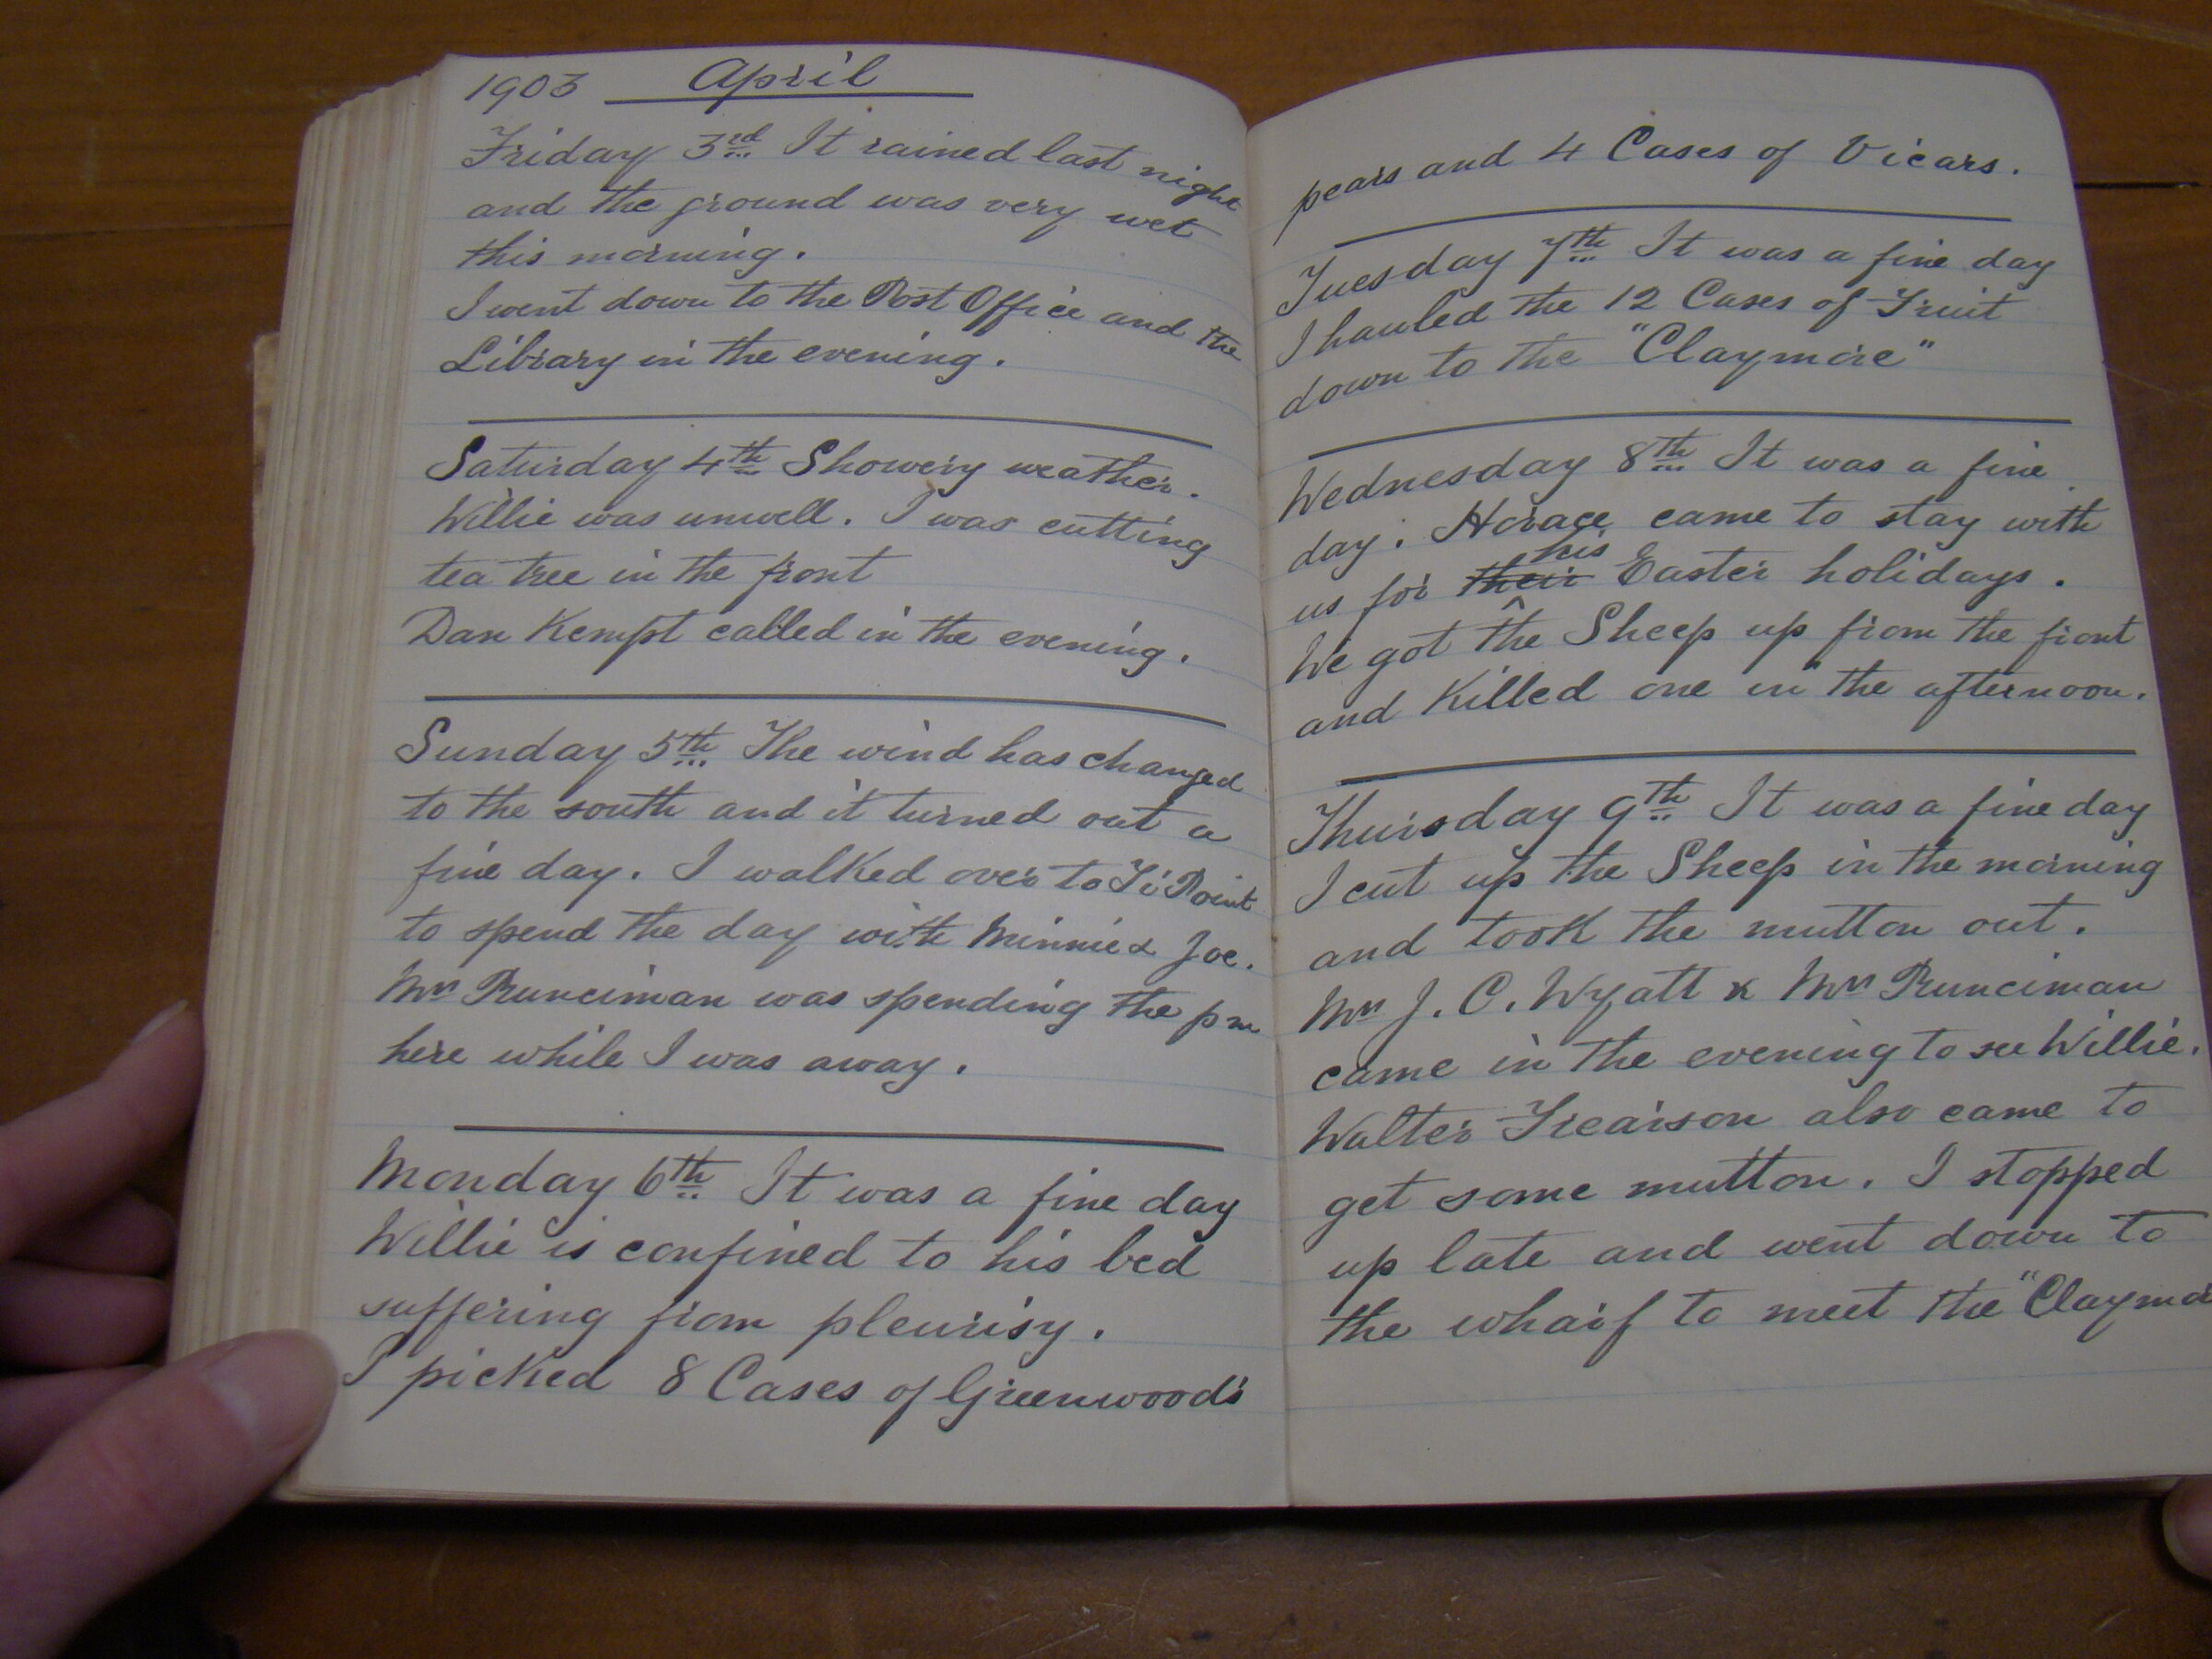 1903 April
Friday 3rd It rained last night
and the ground was very wet
this morning.
I went down to the Post Office and the
Library in the evening.
Saturday 4th Showery weather.
Willie was unwell. I was cutting
tea tree in the front
Dan Kempt called in the evening.
Sunday 5th The wind has changed
to the south and it turned out a
fine day. I walked over to Ti Point
to spend the day with Minnie & Joe.
Mrs Runciman was spending the pm
here while I was away.
Monday 6th It was a fine day
Willie is confined to his bed
suffering from pleurisy.
I picked 8 Cases of Greenwood's
pears and 4 Cases of Vicars.
Tuesday 7th It was a fine day
I hauled the 12 Cases of Fruit
down to the "Claymore"
Wednesday 8th It was a fine
day. Horace came to stay with
his
us for their Easter holidays.
We got the Sheep up from the front
and Killed one in the afternoon.
Thursday 9th It was a fine day
I cut up the Sheep in the morning
and took the mutton out.
Mrs J. C. Wyatt & Mrs Runciman
came in the evening to see Willie.
Walter Frearson also came to
get some mutton. I stopped
up late and went down to
the wharf to meet the "Claymo